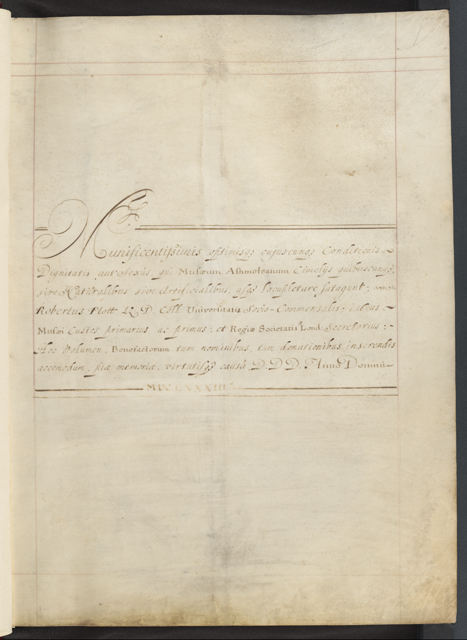 Munificentissimis optimisq cujuscunq Conditionis
Dignitatis aut sexus qui Musæum Ashmoleanum Cimeliis quibuscunq,
sive Naturalibus sive Artificialibus, usq locupletare satagunt;
Robertus Plott LL.D. Coll: Universitatis Socio-Commensalis; hujus
Musæi Custos primarius ac primus; et Regiæ Societatis Lond. Secretarius;
Hoc Volumen, Benefactorum tum nominibus, tum donationibus inserendis
accomodum, piæ memoriæ, virtutisq causâ D.D.D. Anno Domini
MDCLXXXIII.